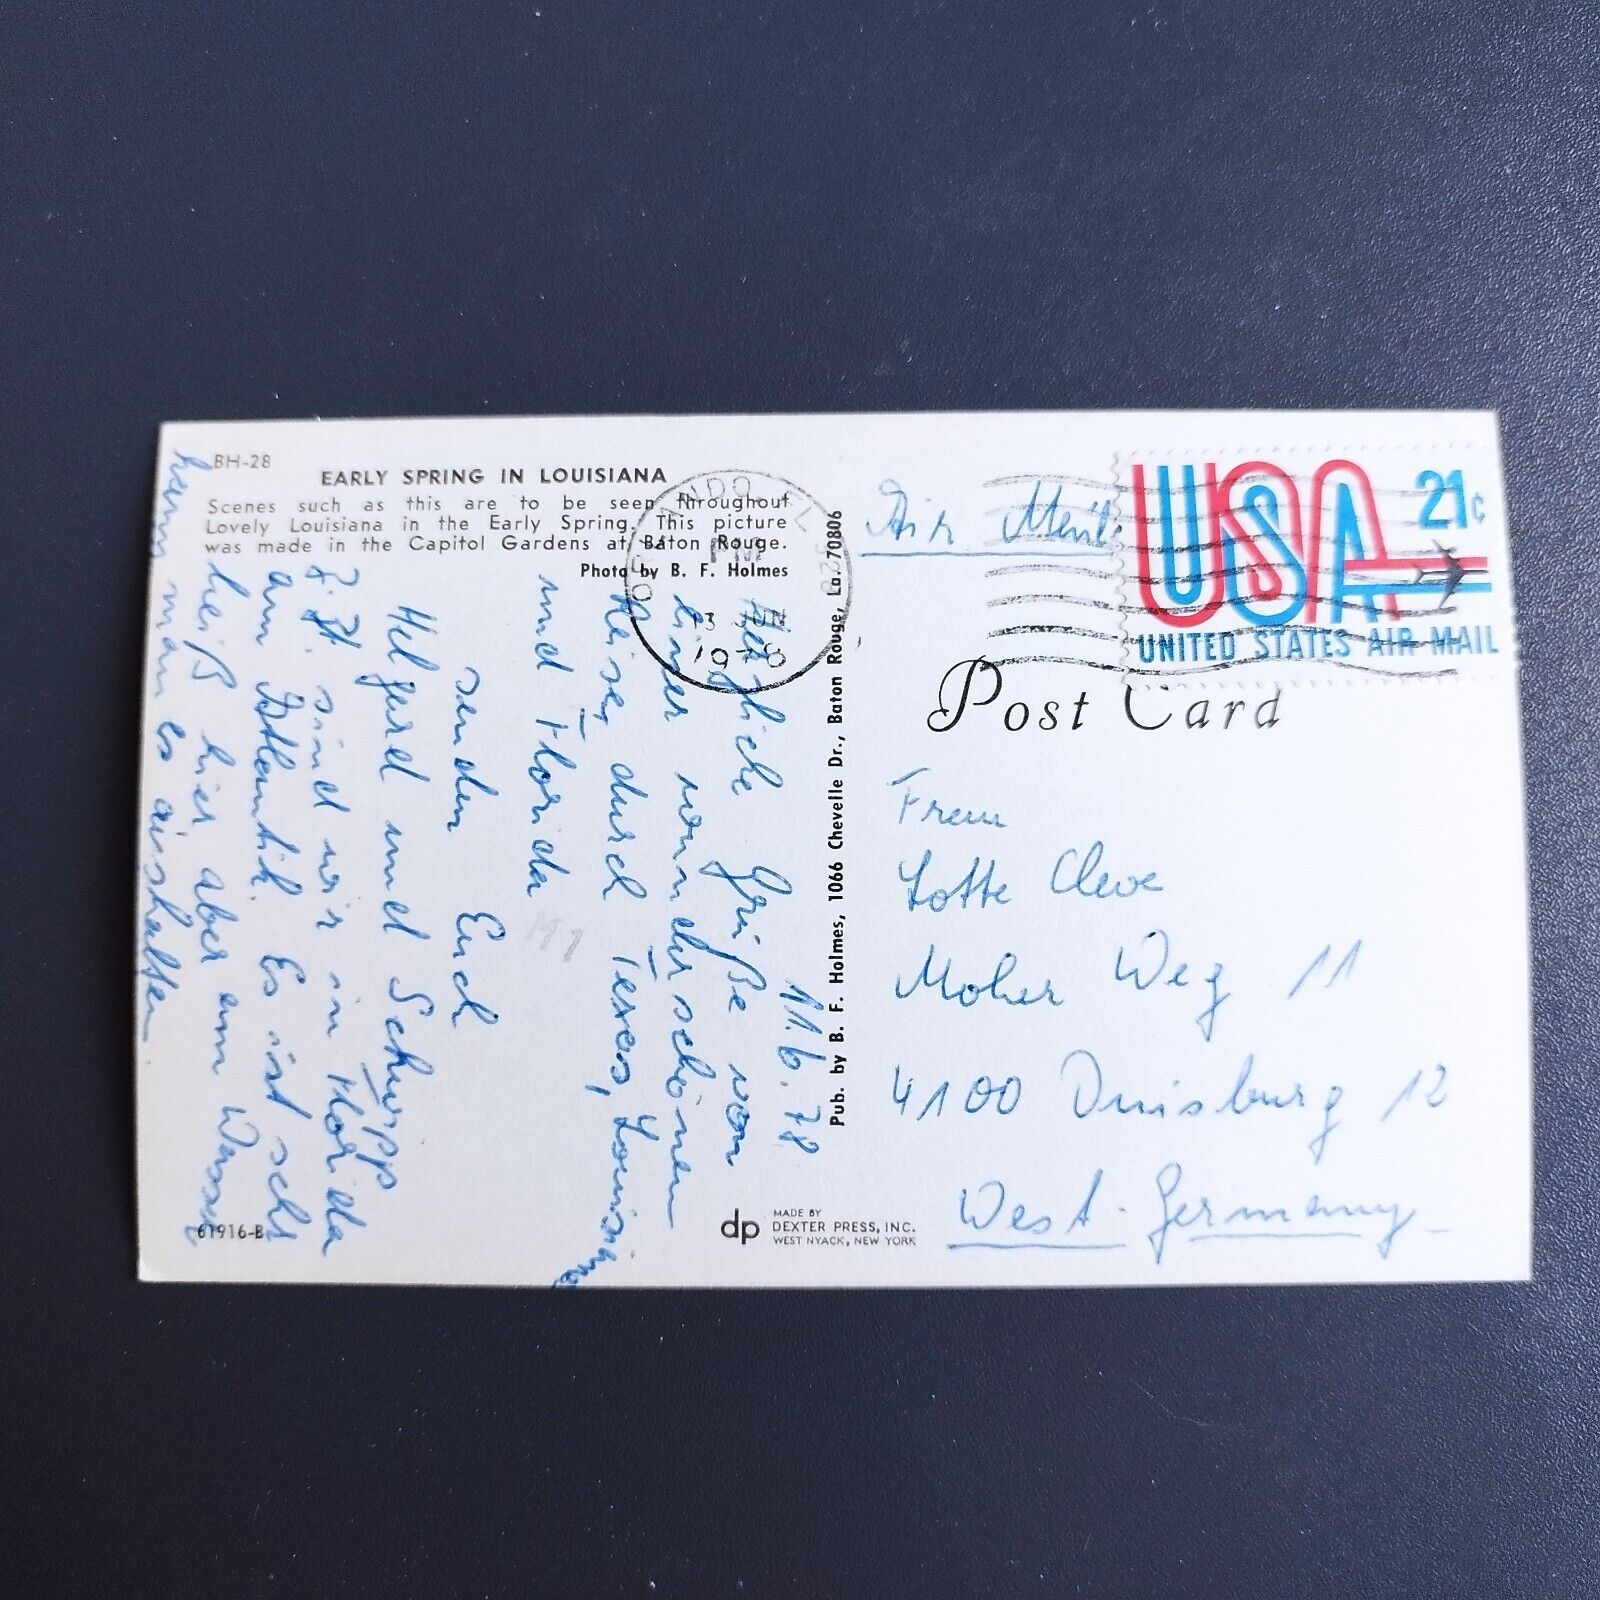 BH-28
EARLY SPRING IN LOUISIANA
Scenes such as this are to be seen throughout
Lovely Louisiana in the Early Spring. This picture
was made in the Capitol Gardens at Baton Rouge.
Photo by B. F. Holmes
11.6.78
Herzliche Grüße von
einer wunderschönen
Reise durch Texas, Louisiana
und Florida
senden Euch
Helgard und Schwipp
Z. Zt. sind wir in Florida
am Atlantik. Es ist sehr
heiß hier aber am Wasser
kann man es aushalten.
M1
61916-B
Pub. by B. F. Holmes, 1066 Chevelle Dr., Baton Rouge, La. 70806
dp
MADE BY
DEXTER PRESS, INC.
WEST NYACK, NEW YORK
PM
Air Mail
USA 21c
UNITED STATES AIR MAIL
Post Card
Frau
Lotte Cleve
Moher Weg 11
4100 Duisburg 12
West-Germany